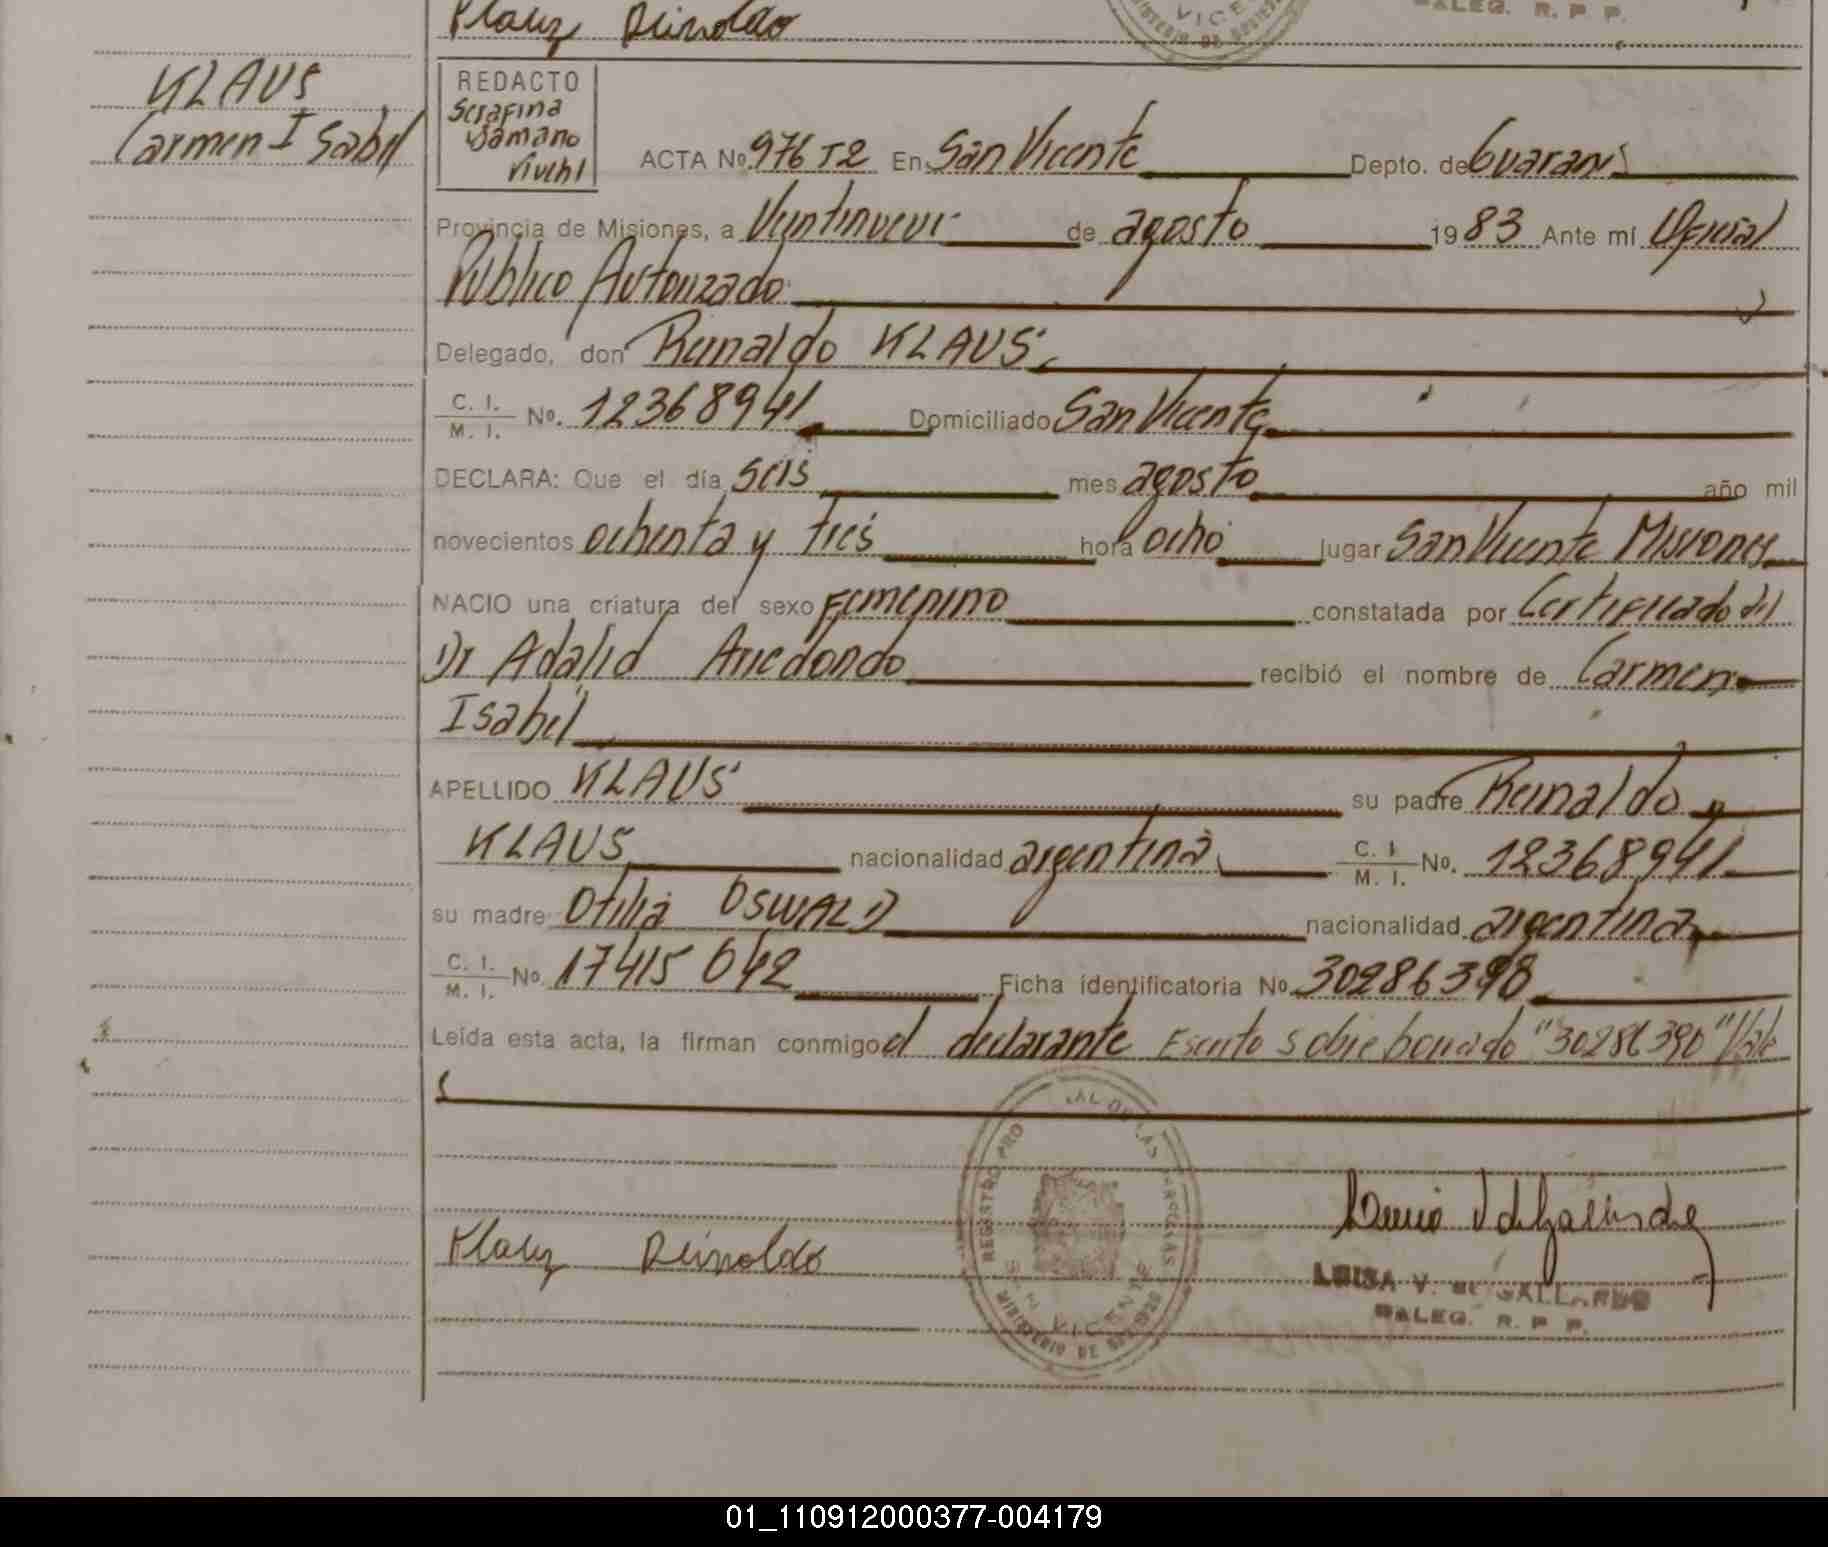 Klauz Reinoldo
VICE
MINISTERIO DE GOBIERNO
DALEG. R. P. P.
KLAUS
Carmen Isabel
REDACTO
Serafina
Samano
Viuchi
ACTA No. 976 T2 En San Vicente Depto. de Guarani
Provincia de Misiones, a Veintinueve de agosto 1983 Ante mí Oficial
Publico Autorizado
Delegado, don Reinaldo KLAUS,
C. I. / M. I. No. 12368941 Domiciliado San Vicente
DECLARA: Que el día seis mes agosto año mil
novecientos ochenta y tres hora ocho lugar San Vicente Misiones
NACIO una criatura del sexo femenino constatada por Certificado del
Dr Adalid Arredondo recibió el nombre de Carmen
Isabel
APELLIDO KLAUS su padre Reinaldo
KLAUS nacionalidad argentina C. I. / M. I. No. 12368941
su madre Otilia OSWALD nacionalidad argentina
C. I. / M. I. No. 17415042 Ficha identificatoria No. 30286390
Leída esta acta, la firman conmigo el declarante Escrito sobre borrado "30286390" Vale
REGISTRO PRO AL DE LAS PERSONAS
SAN VICENTE
MINISTERIO DE GOBIERNO
Klauz Reinoldo
LUISA V. DE GALLARDO
DALEG. R. P. P.
01_110912000377-004179